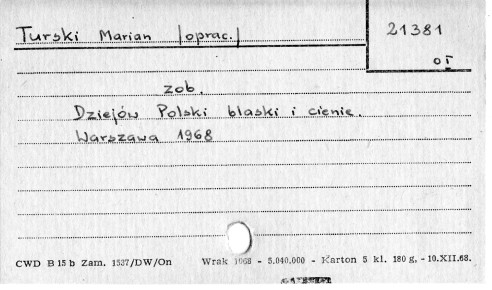 Turski Marian /oprac./
21381
o I
zob.
Dziejów Polski blaski i cienie.
Warszawa 1968
CWD B 15 b Zam. 1537/DW/On Wrak 1968 - 5.040.000 - Karton 5 kl. 180 g, - 10.XII.68.